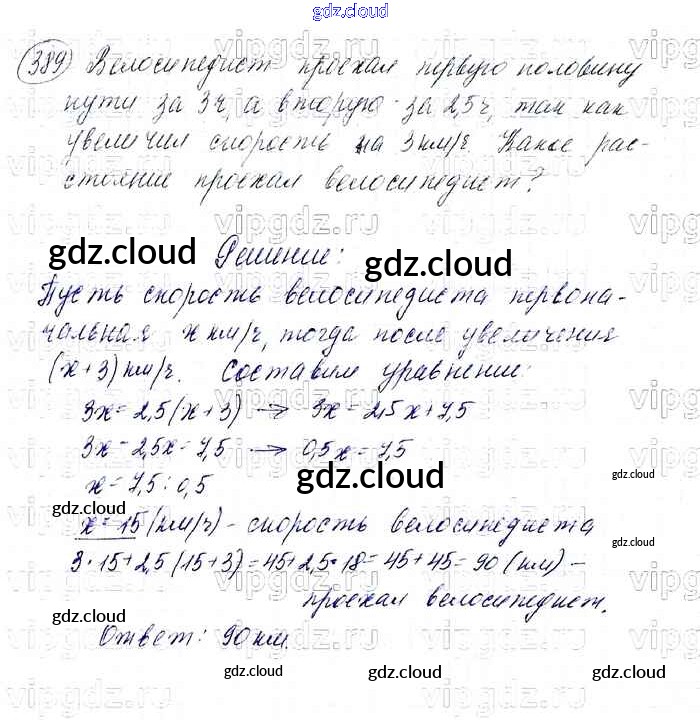 gdz.cloud
389 Велосипедист проехал первую половину
пути за 3ч, а вторую - за 2,5ч, так как
увеличил скорость на 3км/ч. Какое рас-
стояние проехал велосипедист?
gdz.cloud Решение: gdz.cloud
Пусть скорость велосипедиста первона-
чальная x км/ч, тогда после увеличения
(x+3) км/ч. Составим уравнение:
3x = 2,5(x+3) → 3x = 2,5x + 7,5
3x - 2,5x = 7,5 → 0,5x = 7,5
x = 7,5 : 0,5
gdz.cloud
gdz.cloud
gdz.cloud
x = 15 (км/ч) - скорость велосипедиста
gdz.cloud
3·15 + 2,5(15+3) = 45 + 2,5·18 = 45 + 45 = 90 (км) -
проехал велосипедист.
gdz.cloud
Ответ: 90 км.
gdz.cloud gdz.cloud gdz.cloud